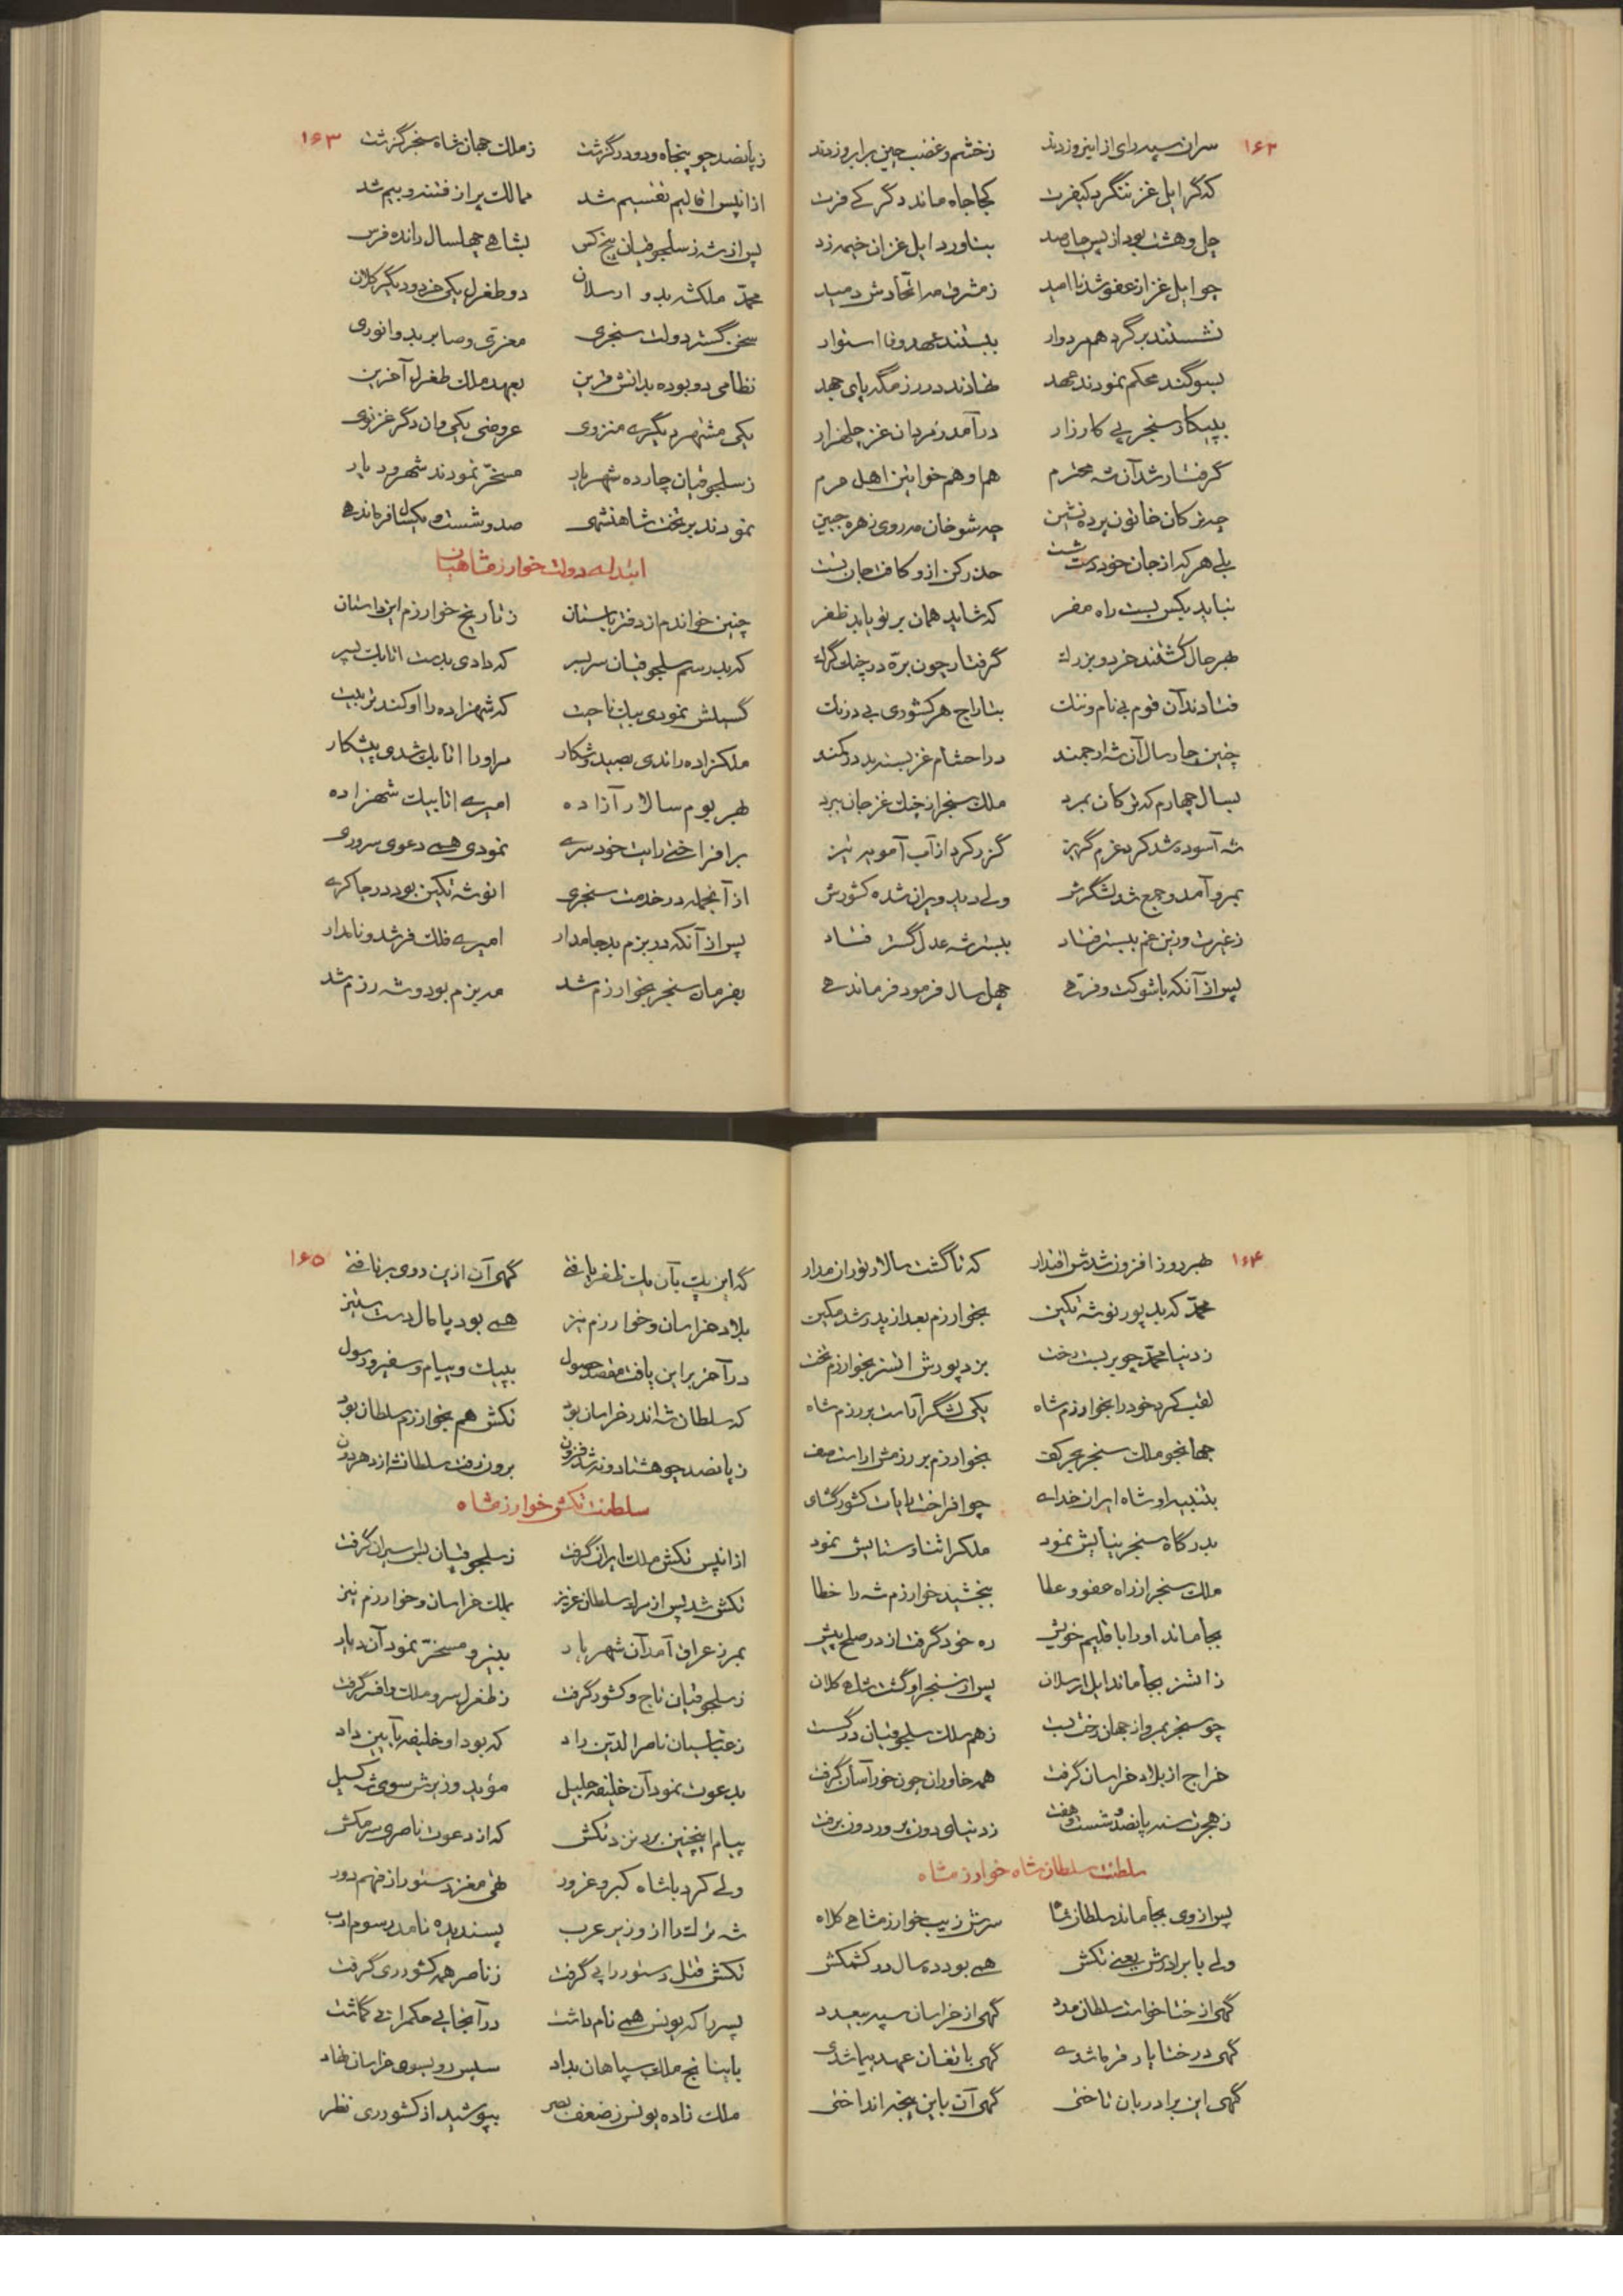 ۱۶۲
سران سپه رای از این روزدند ز خشم و غضب چین بر ابرو زدند
که گر ایل غز ننگرد کیفرت کجا جاه ماند دگر کے فرت
چل و هشت بود از پس چارصد بناورد ایل غزان خیمه زد
چو ایل غز از عفو شد ناامید ز مشرق مه اتحادش دمید
نشستند بر گرد هم مردوار ببستند عهد و فا استوار
بسوگند محکم نمودند عهد نهادند در رزمگه پای جهد
به پیکار سنجر پی کارزار درآمد ز مردان غز چلهزار
گرفتار شد آن شه محترم هم او هم خواتین اهل حرم
چه ترکان خاتون پرده نشین چه شو خان مه روی زهره جبین
بلے هر که از جان خود دست شست حذر کن از و کافت جان تست
نباید بکس بست راه مفر که شاید همان بر تو یابد ظفر
بهر حال کشتند خرد و بزرك گرفتار چون برّه در چنك گرك
فتادند آن قوم بی نام و ننك بتاراج هر کشوری بی درنك
چنین چار سال آن شه ارجمند در احشام غز بسته بد در کمند
بسال چهارم که ترکان بمرد ملك سنجر از چنك غز جان ببرد
شه آسوده شد کرد عزم گریز گذر کرد از آب آمویه نیز
بمرو آمد و جمع شد لشگرش ولی دید ویران شده کشورش
ز غیرت و زین غم ببستر فتاد ببستر شه عدل گستر فتاد
پس از آنکه با شوکت و فرّهے چهل سال فرمود فرماندهے
۱۶۳
ز پانصد چو پنجاه و دو درگذشت ز ملك جهان شاه سنجر گذشت
از آنپس اقالیم تقسیم شد ممالك پر از فتنه و بیم شد
پس از شه ز سلجوقیان پنج کس بشاهے چهلسال رانده فرس
محمّد ملکشه بد و ارسلان دو طغرل یکی خرد و دیگر کلان
سخن گستر دولت سنجری معزّی و صابر بد و انوری
نظامی دو بوده بدانش قرین بعهد ملك طغرل آخرین
یکی مشتهر دیگرے منزوی عروضی یکی وان دگر غزنوی
ز سلجوقیان چارده شهریار مسخّر نمودند شهر و دیار
نمودند بر تخت شاهنشهی صد و شست و یکسال فرماندهے
ابتداے دولت خوارزمشاهیان
چنین خواندم از دفتر باستان ز تاریخ خوارزم این داستان
که بد رسم سلجوقیان سر بسر که دادی بدست اتابك پسر
گسیلش نمودی بیك ناحیت که شهزاده را او کند تربیت
ملکزاده راندی بصید و شکار مر او را اتابك شدی پیشکار
بهر بوم سالار آزاده امیرے اتابیك شهزاده
بر افراختے رایت خودسرے نمودی همے دعوی سروری
از آنجمله در خدمت سنجری انوشه تکین بود در چاکرے
پس از آنکه در بزم بد جامدار امیرے فلك فر شد و نامدار
بفرمان سنجر بخوارزم شد مه بزم بود و شه رزم شد
۱۶۴
بهر روز افزون شدش اقتدار که تا گشت سالار توران مدار
محمّد که بد پور نوشه تکین بخوارزم بعد از پدر شد مکین
ز دنیا محمّد چو بر بست رخت بزد پورش اتسز بخوارزم تخت
لقب کرد خود را بخوارزم شاه یکی لشگر آراست بر رزم شاه
جهانجو ملك سنجر بحر کف بخوارزم بر رزمش آراست صف
بتنبیه او شاه ایران خداے چو افراخت رایات کشور گشای
بدرگاه سنجر نیایش نمود ملکرا ثنا و ستایش نمود
ملك سنجر از راه عفو و عطا ببخشید خوارزم شه را خطا
بجا ماند او را باقلیم خویش ره خود گرفت از در صلح پیش
ز اتسز بجا ماند ایل ارسلان پس از سنجر او گشت شاهے کلان
چو سنجر بمرو از جهان رخت بست ز هم سلك سلجوقیان درگسست
خراج از بلاد خراسان گرفت همه خاوران چون خور آسان گرفت
ز هجرت سنه پانصد و شست و هفت ز دنیای دون پرور دون برفت
سلطنت سلطان شاه خوارزمشاه
پس از وی بجا ماند سلطان شاه سرش زیب خوارزمشاهے کلاه
ولی با برادرش یعنے تکش همے بود ده سال در کشمکش
گهی از ختا خواست سلطان مدد گهی از خراسان سپه بیعدد
گهی در ختا یار فرما شدے گهی با تغان عهد پیما شدی
گهی این برادر بان تاختی گهی آن باین پنجه انداختی
۱۶۵
گه این یك بآن یك ظفر یافتے گهی آن ازین روی بر تافتے
بلاد خراسان و خوارزم نیز همے بود پامال دست ستیز
در آخر بر این یافت مقصد حصول به پیك و پیام و سفیر و رسول
که سلطان شه اندر خراسان بود تکش هم بخوارزم سلطان بود
ز پانصد چو هشتاد و نه شد فزون برون رفت سلطانشه از دهر دون
سلطنت تکش خوارزمشاه
از آنپس تکش ملك ایران گرفت ز سلجوقیان پس سیران گرفت
تکش شد پس از مرك سلطان عزیز بملك خراسان و خوارزم نیز
بمرز عراق آمد آن شهریار بنیرو مسخّر نمود آن دیار
ز سلجوقیان تاج و کشور گرفت ز طغرل سر و ملك و افسر گرفت
ز عبّاسیان ناصر الدّین راد که بود او خلیفه بآیین و داد
بدعوت نمود آن خلیفه جلیل مؤید وزیرش سوی شه گسیل
پیام اینچنین برد نزد تکش که از دعوت ناصری سر مکش
ولے کرد با شاه کبر و غرور تهی مغز دستور از فهم دور
شه ترك را از وزیر عرب پسندیده نامد رسوم ادب
تکش قتل دستور را پی گرفت ز ناصر همه کشور ری گرفت
پسر را که یونس همے نام داشت در آنجا پی حکمرانے گماشت
باینانج ملك سپاهان بداد سپس رو بسوی خراسان نهاد
ملك زاده یونس ز ضعف بصر بپوشید از کشور ری نظر